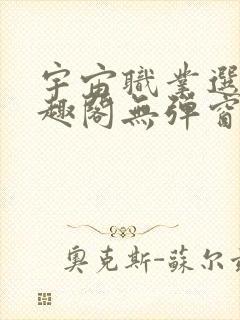 宇宙職業選
趣閣無彈窗
奧克斯-蘇爾